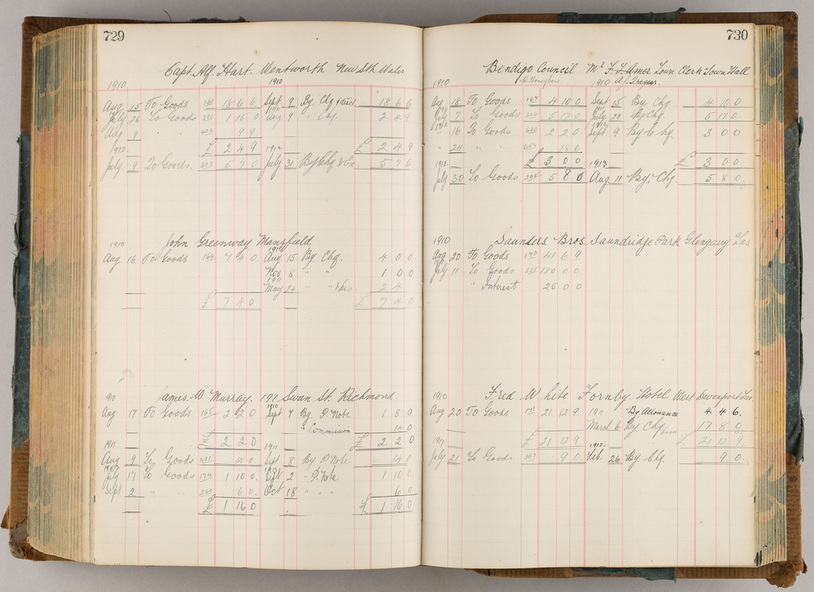 729
Capt. Alf. Hart. Wentworth New Sth Wales
1910
Aug 15 To Goods 18 6 6 Sept 9 By Chq 18 6 6
July 26 To Goods 1 15 0 Aug 9 " Chq. 2 4 9
Aug 9 " " 9 9
1912 £ 2 4 9 1912 £ 2 4 9
July 9 To Goods 5 7 6 July 31 By Chq 5 7 6
1910 John Greenway Mansfield
Aug 16 To Goods 7 4 0 Aug 15 By Chq. 4 0 0
Nov 8 " " 1 0 0
May 24 " " 2 4
£ 7 4 0 £ 7 4 0
1910 James W. Murray. 191 Swan St. Richmond
Aug 17 To Goods 2 2 0 Sept 7 By P. Note 1 8 0
" Commission 14 0
£ 2 2 0 £ 2 2 0
1911
Aug 9 To Goods Sept 8 By P. Note
July 17 To Goods 1 10 0 Sept 2 " P. Note 1 10 0
Sept 2 " " 6 0 Oct 18 " " 6 0
£ 1 16 0 £ 1 16 0
730
Bendigo Council Mr F. L. Amer Town Clerk Town Hall
1910
Aug 18 To Goods 4 10 0 Sept 15 By Chq 4 10 0
July 7 To Goods 5 17 0 July 20 By Chq 5 17 0
16 To Goods 2 2 0 Sept 9 By Chq. 3 0 0
" 24 " " 18 0
1912 £ 3 0 0 1913 £ 3 0 0
July 30 To Goods 5 8 0 Aug 11 By Chq. 5 8 0
1910 Saunders Bros. Saundridge Park Glengarry Tas
Aug 20 To Goods 41 6 9
July 11 To Goods 180 0 0
" Interest 26 0 0
1910 Fred White Formby Hotel West Devonport Tas
Aug 20 To Goods 21 12 9 By Allowance 4 4 6
March 6 By Chq 17 8 3
£ 21 12 9 £ 21 12 9
July 21 To Goods 9 0 Feb. 26 By Chq. 9 0